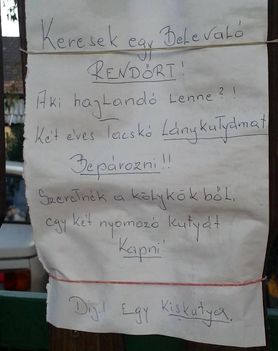 Keresek egy Belevaló
RENDŐRT!
Aki hajlandó lenne?!
Két éves lacskó Lánykutyámat
Bepározni!!
Szeretnék a kölykök ből,
egy két nyomozó kutyát
Kapni!
Díj! Egy Kiskutya.